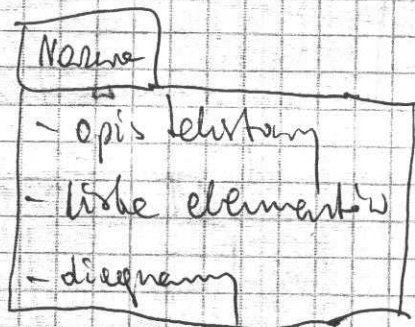 Nazwa
- opis tekstowy
- lista elementów
- diagramy